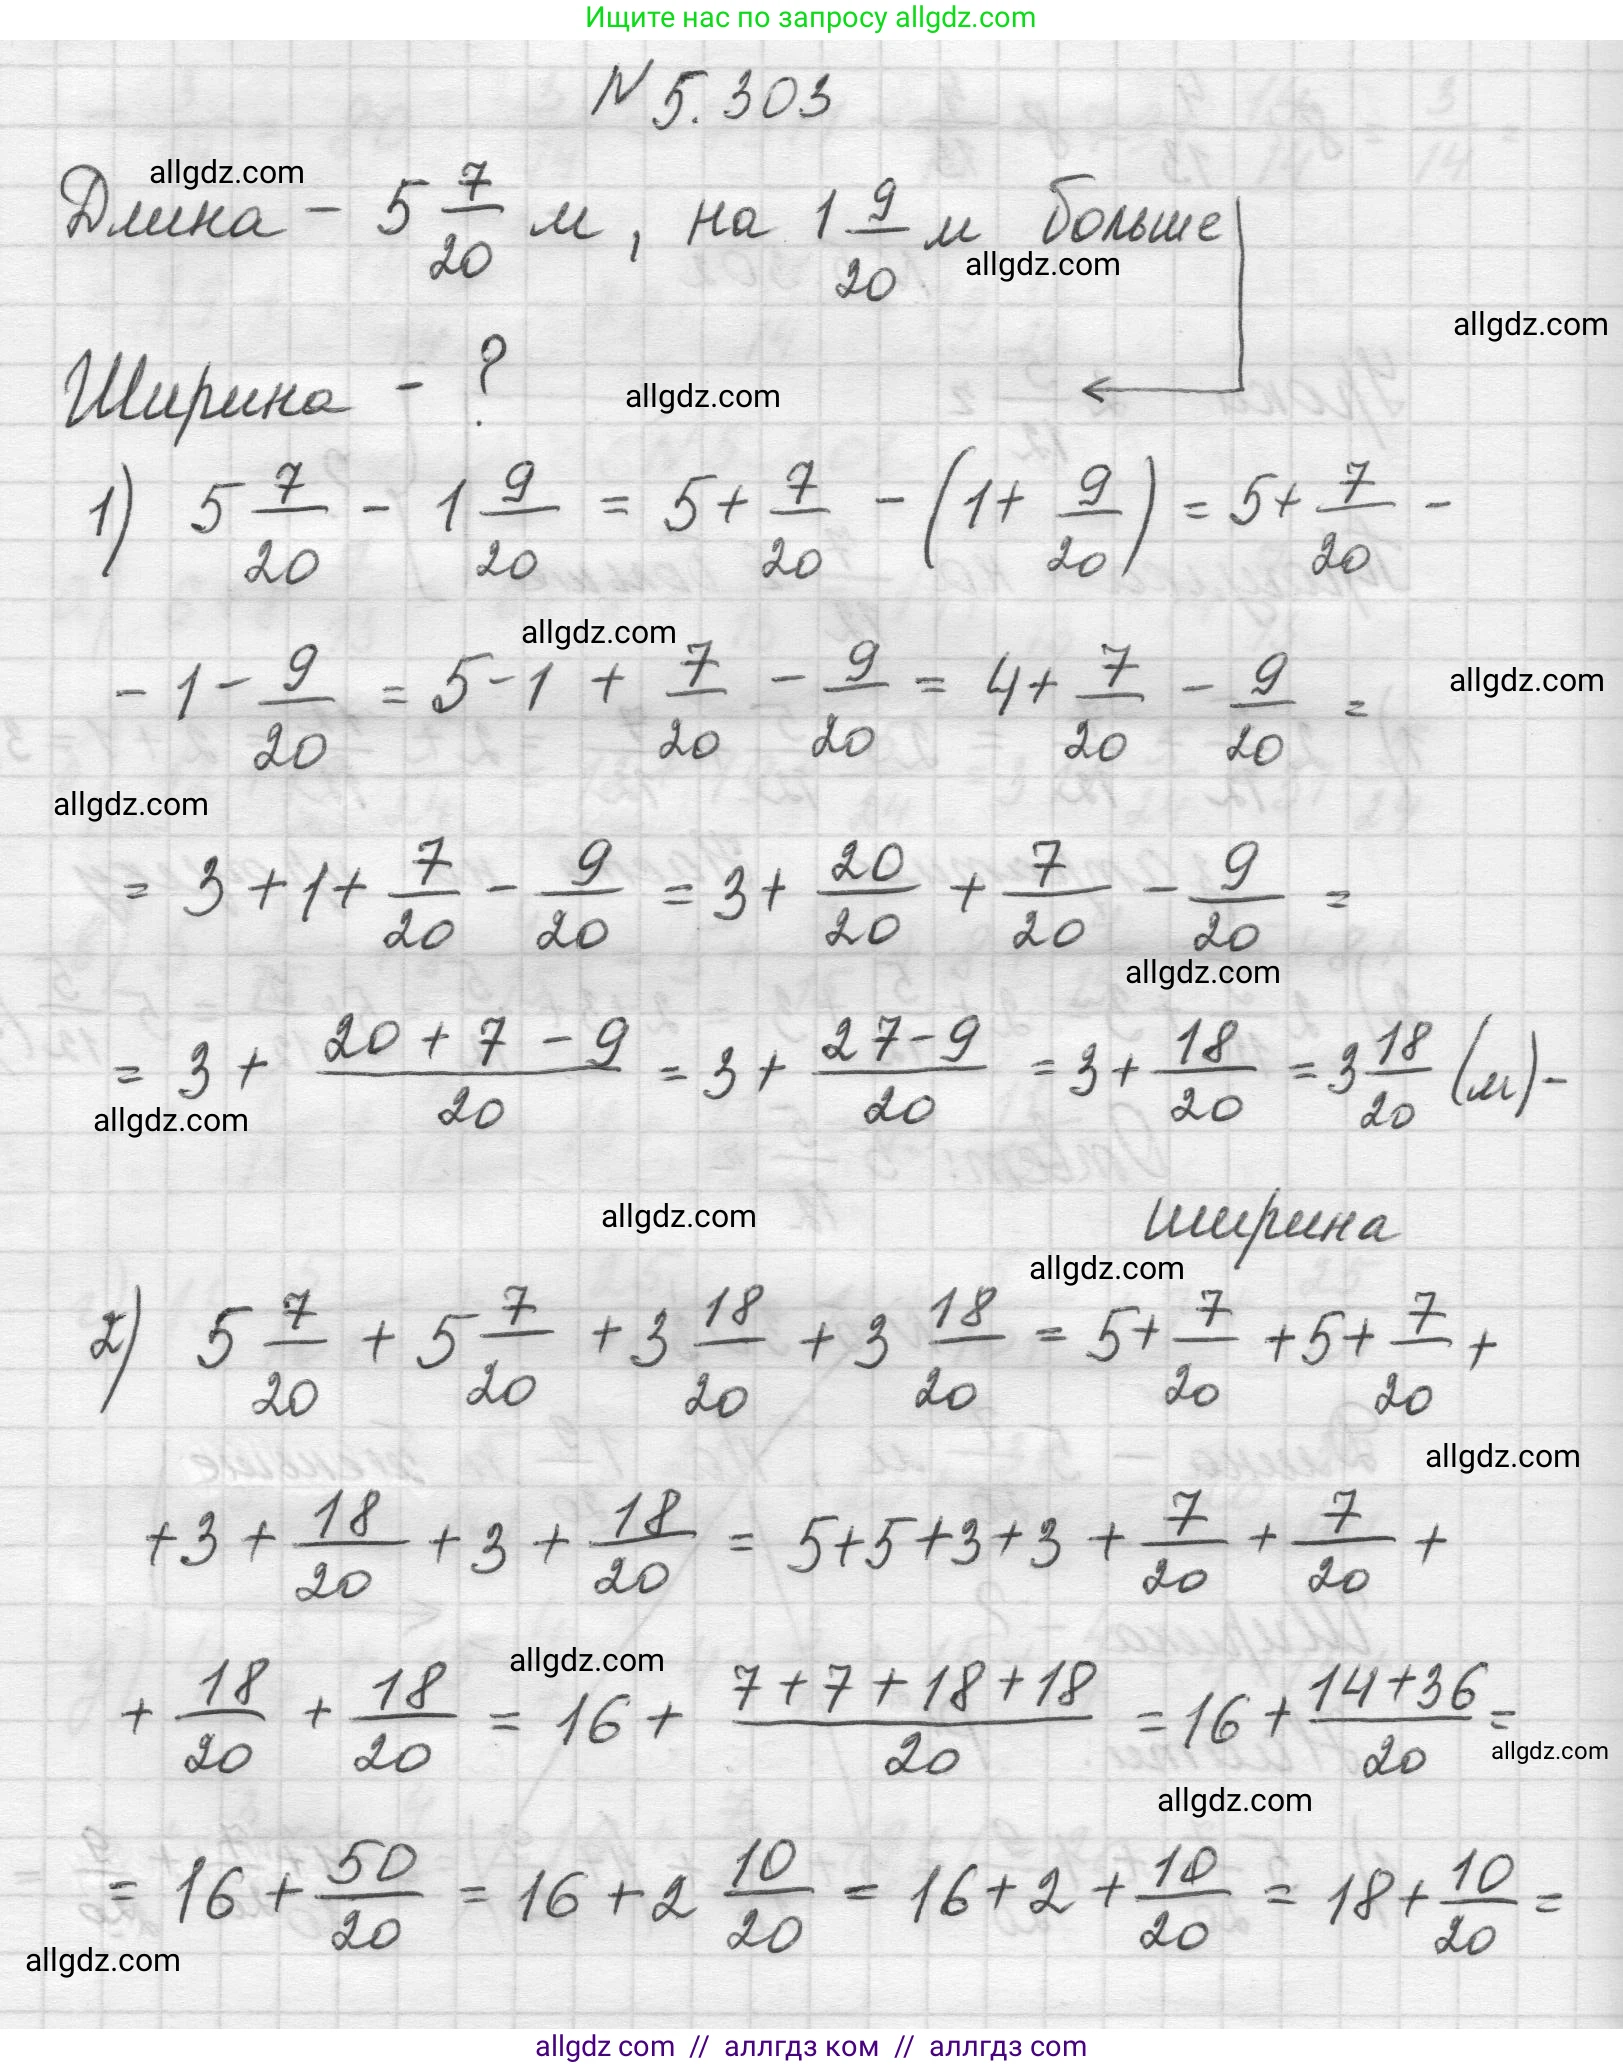 Ищите нас по запросу allgdz.com
N 5.303
allgdz.com
Длина - 5 7/20 м, на 1 9/20 м больше
allgdz.com
allgdz.com
Ширина - ?
allgdz.com
1) 5 7/20 - 1 9/20 = 5 + 7/20 - (1 + 9/20) = 5 + 7/20 -
allgdz.com
- 1 - 9/20 = 5 - 1 + 7/20 - 9/20 = 4 + 7/20 - 9/20 =
allgdz.com
allgdz.com
= 3 + 1 + 7/20 - 9/20 = 3 + 20/20 + 7/20 - 9/20 =
allgdz.com
= 3 + (20 + 7 - 9)/20 = 3 + (27 - 9)/20 = 3 + 18/20 = 3 18/20 (м) -
allgdz.com
allgdz.com
ширина
allgdz.com
2) 5 7/20 + 5 7/20 + 3 18/20 + 3 18/20 = 5 + 7/20 + 5 + 7/20 +
allgdz.com
+ 3 + 18/20 + 3 + 18/20 = 5 + 5 + 3 + 3 + 7/20 + 7/20 +
allgdz.com
+ 18/20 + 18/20 = 16 + (7 + 7 + 18 + 18)/20 = 16 + (14 + 36)/20 =
allgdz.com
allgdz.com
= 16 + 50/20 = 16 + 2 10/20 = 16 + 2 + 10/20 = 18 + 10/20 =
allgdz.com
allgdz com // аллгдз ком // allgdz com